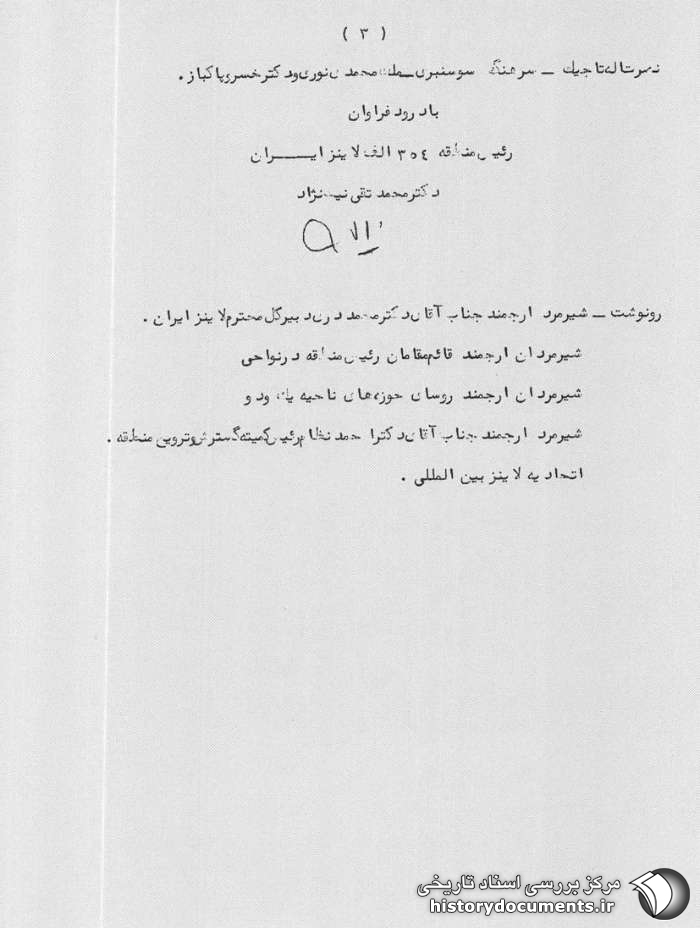 ( ۳ )
نصرت اله تاجیك ــ سرهنگ سوسنبری ــ ملك محمدی نوری و دکتر خسرو پاکباز .
با درود فراوان
رئیس منطقه ۳۵٤ الف لاینز ایــــران
دکتر محمد تقی نیك نژاد
رونوشت ــ شیرمرد ارجمند جناب آقای دکتر محمد دری دبیرکل محترم لاینز ایران .
شیرمردان ارجمند قائم مقامان رئیس منطقه در نواحی
شیرمردان ارجمند روسای حوزه های ناحیه یك و دو
شیرمرد ارجمند جناب آقای دکتر احمد نظام رئیس کمیته گسترش و ترویج منطقه .
اتحادیه لاینز بین المللی .
مرکز بررسی اسناد تاریخی
historydocuments.ir